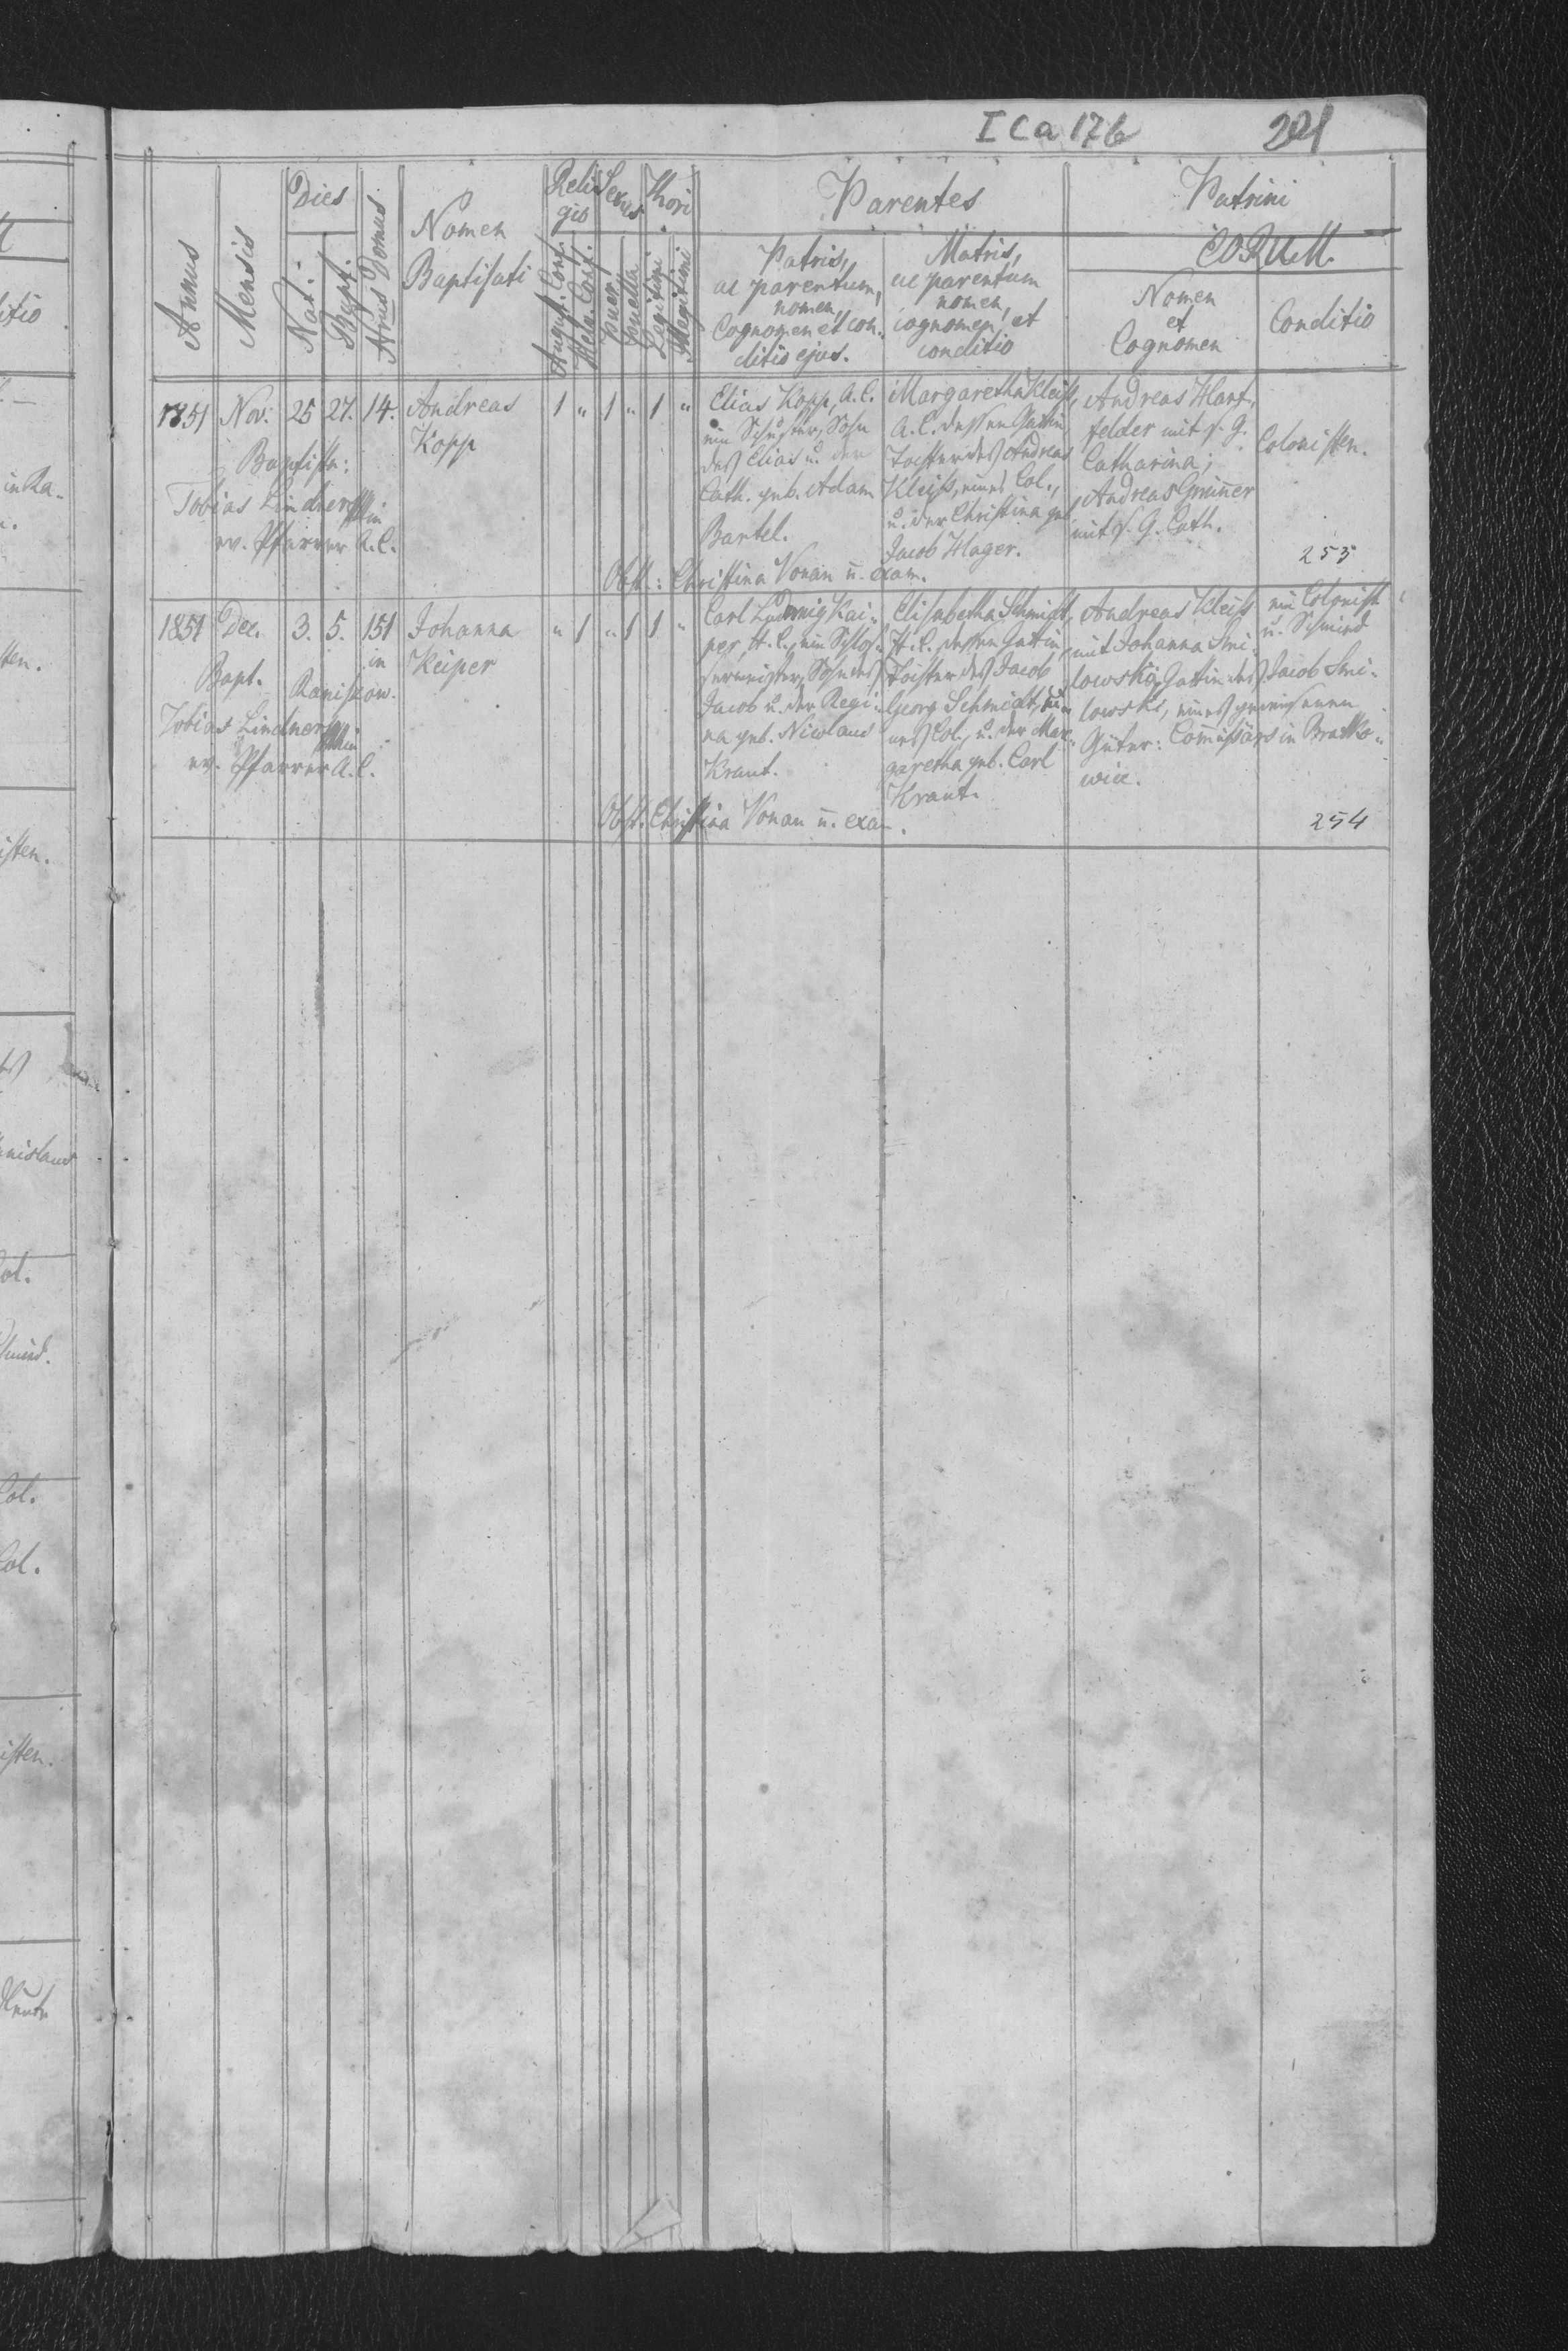 I C a 176
201
Dies
Religio
Sexus
Thori
Parentes
Patrini
Annus
Mensis
Nat.
Bapt.
Nrus Domus
Nomen
Baptisati
August. Conf.
Helv. Conf.
Puer
Puella
Legitimi
Illegitimi
Patris,
ac parentum,
nomen,
Cognomen et con-
ditio ejus.
Matris,
ac parentum
nomen,
cognomen, et
conditio
EORUM.
Nomen
et
Cognomen
Conditio
1851 Nov. 25 27. 14. Andreas 1 " 1 " 1 "
Kopp
Baptista:
Tobias Lindner
ev. Pfarrer A.C.
Elias Kopp, A.C.
ein Schuster, Sohn
des Elias u. der
Cath. geb. Adam
Bartel.
Margaretha Kleiß,
A.C. dessen Gattin
Tochter des Andreas
Kleiß, eines Col.,
u. der Christina geb.
Jacob Hager.
Andreas Hart-
felder mit s. G.
Catharina;
Andreas Grunner
mit s. G. Cath.
Colonisten.
253
Obst.: Christina Vonau u. exam.
1851 Dec. 3. 5. 151 Johanna " 1 " 1 1 "
in Keiper
Bapt. Raniszow.
Tobias Lindner
ev. Pfarrer A.C.
Carl Ludwig Kai-
per, H.C., ein Schlos-
sermeister, Sohn des
Jacob u. der Regi-
na geb. Nicolaus
Kraut.
Elisabetha Schmidt,
H.C. dessen Gattin
Tochter des Jacob
Georg Schmidt, ei-
nes Col., u. der Mar-
garetha geb. Carl
Kraut.
Andreas Kleiß ein Colonist
mit Johanna Smi- u. Schmied
lowska, Gattin des Jacob Smi-
lowski, eines gewesenen
Güter-Commissärs in
254
Obst. Christina Vonau u. exam.